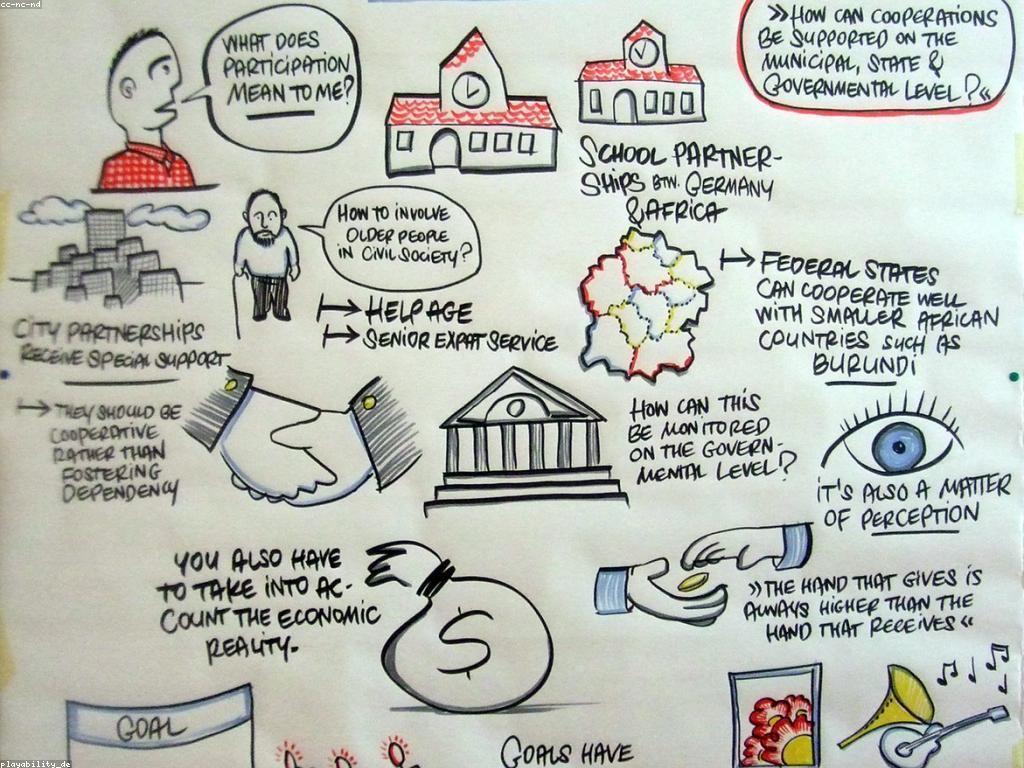 cc-nc-nd
WHAT DOES
PARTICIPATION
MEAN TO ME?
»HOW CAN COOPERATIONS
BE SUPPORTED ON THE
MUNICIPAL, STATE &
GOVERNMENTAL LEVEL?«
SCHOOL PARTNER-
SHIPS BTW. GERMANY
& AFRICA
HOW TO INVOLVE
OLDER PEOPLE
IN CIVIL SOCIETY?
HELPAGE
SENIOR EXPAT SERVICE
FEDERAL STATES
CAN COOPERATE WELL
WITH SMALLER AFRICAN
COUNTRIES SUCH AS
BURUNDI
CITY PARTNERSHIPS
RECEIVE SPECIAL SUPPORT
THEY SHOULD BE
COOPERATIVE
RATHER THAN
FOSTERING
DEPENDENCY
HOW CAN THIS
BE MONITORED
ON THE GOVERN-
MENTAL LEVEL?
IT'S ALSO A MATTER
OF PERCEPTION
YOU ALSO HAVE
TO TAKE INTO AC-
COUNT THE ECONOMIC
REALITY.
$
»THE HAND THAT GIVES IS
ALWAYS HIGHER THAN THE
HAND THAT RECEIVES«
GOAL
GOALS HAVE
playability_de